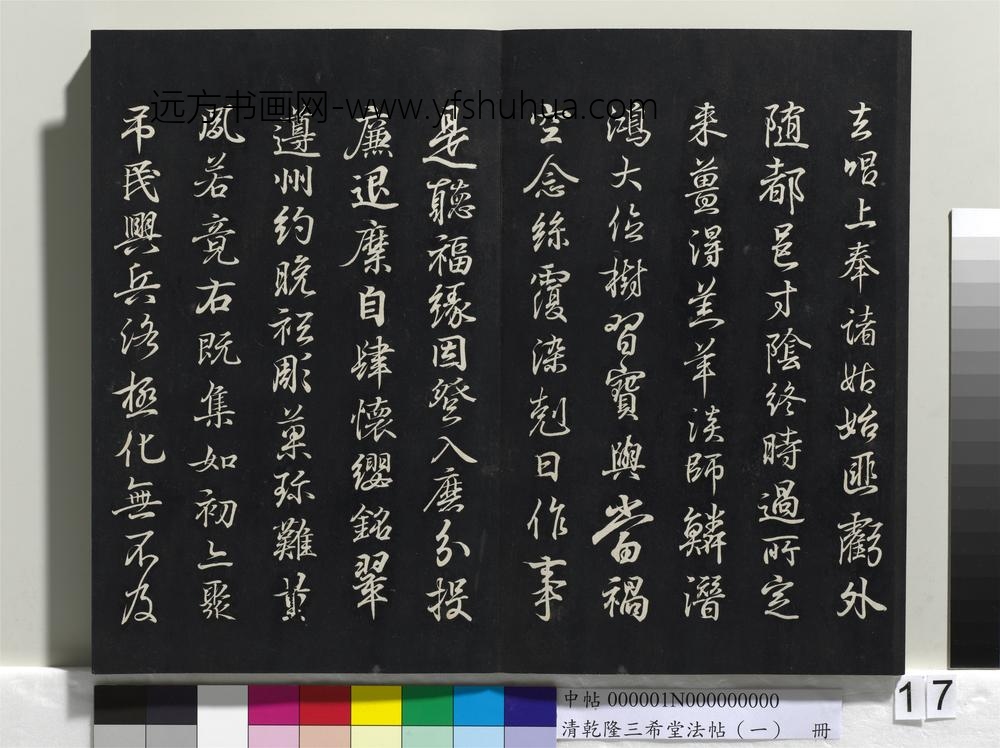 去唱上奉諸姑始匪虧外
随都邑寸陰終時過所定
来薑淂羔羊淡師鱗潛
鴻大位樹習寶與當禍
空念絲覆染尅日作事
是聽福緣因登入磨分投
廉退糜自肆懷纓銘翠
遵州約晚祗彫菓珎難
若竟右既集如初亦聚
吊民興兵洛極化無不及
远方书画网-www.yfshuhua.com
中帖 000001N000000000
清乾隆三希堂法帖（一） 冊
17